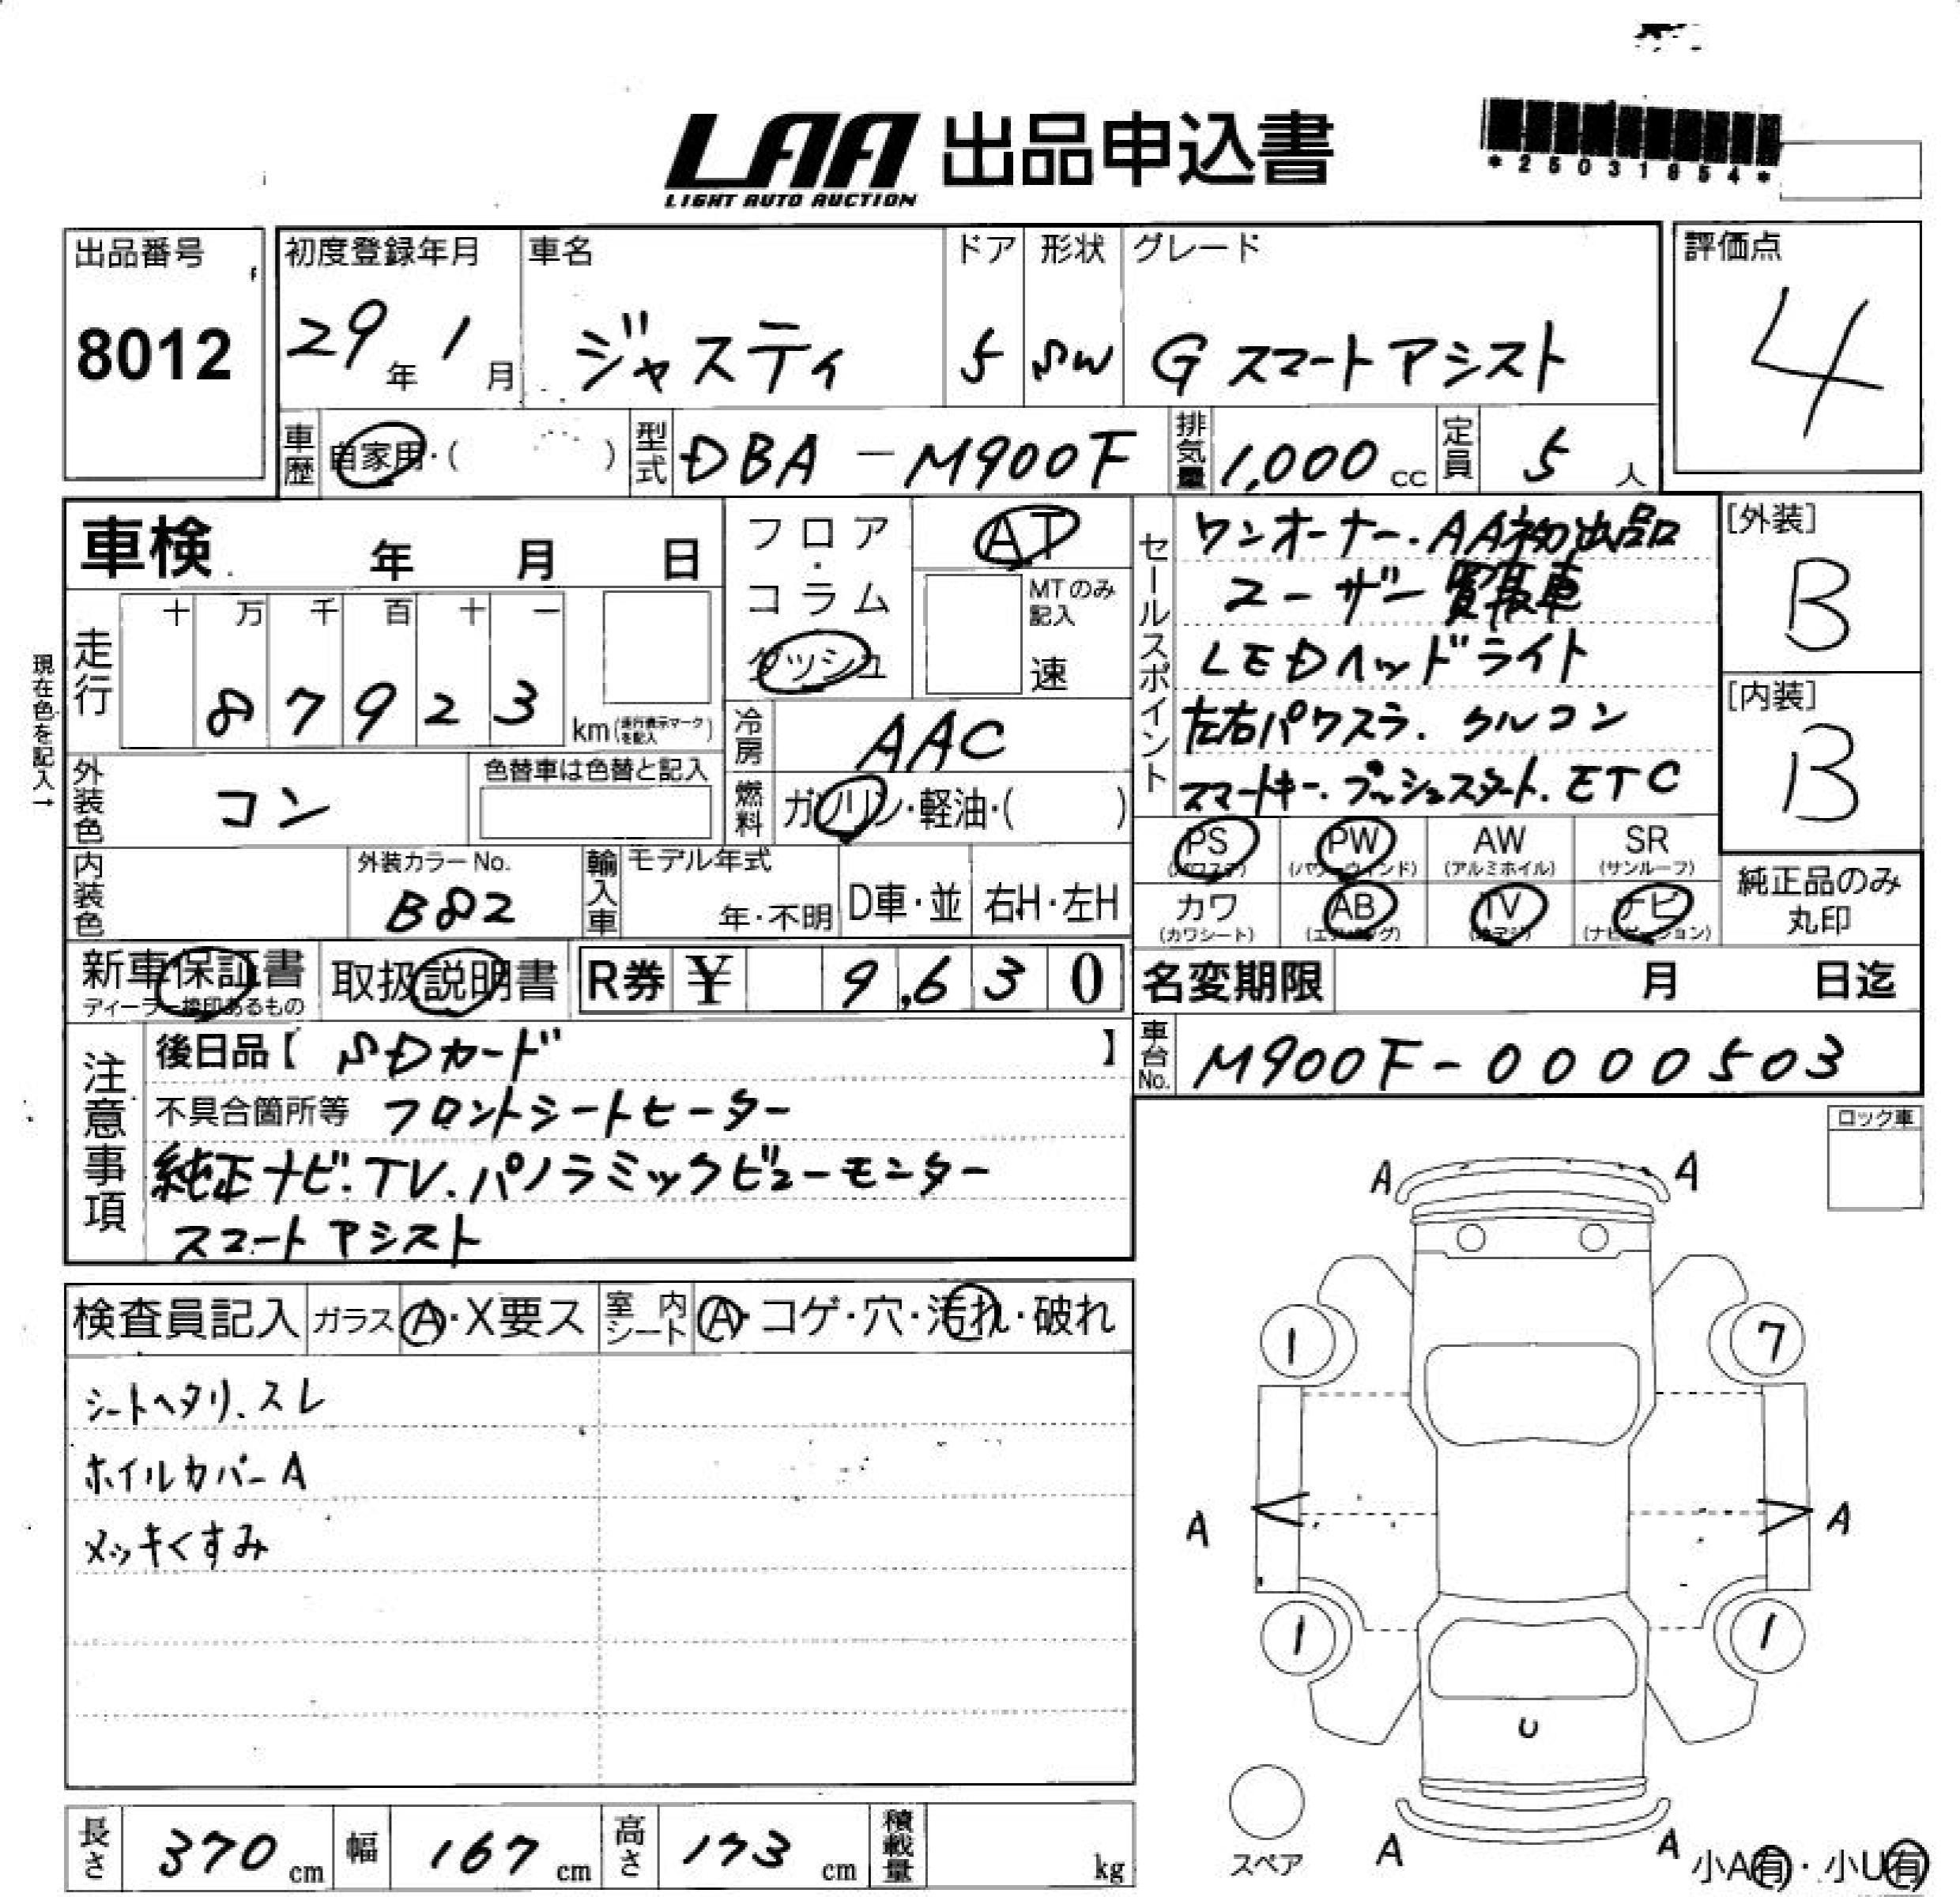 LAA 出品申込書
LIGHT AUTO AUCTION
出品番号
8012
初度登録年月
29年 1月
車名
ジャスティ
ドア
5
形状
SW
グレード
G スマートアシスト
評価点
4
車歴 自家用・( )
型式 DBA-M900F
排気量 1,000 cc
定員 5 人
車検 年 月 日
現在色を記入→
走行 十 万 千 百 十 一
87923 km (走行表示マークを記入)
フロア・コラム ダッシュ
AT
MTのみ記入
速
冷房 AAC
燃料 ガソリン・軽油・( )
外装色 コン
色替車は色替と記入
内装色
外装カラーNo.
B82
輸入車
モデル年式
年・不明
D車・並
右H・左H
セールスポイント
ワンオーナー. AA初出品
ユーザー買取車
LEDヘッドライト
左右パワスラ. クルコン
スマートキー. プッシュスタート. ETC
[外装]
B
[内装]
B
PS (パワステ)
PW (パワーウィンド)
AW (アルミホイル)
SR (サンルーフ)
カワ (カワシート)
AB (エアバッグ)
TV
ナビ (ナビゲーション)
純正品のみ丸印
新車保証書
ディーラー捺印あるもの
取扱説明書
R券 ¥ 9,630
名変期限 月 日迄
車台No. M900F-0000503
注意事項
後日品【 SDカード 】
不具合箇所等 フロントシートヒーター
純正ナビ. TV. パノラミックビューモニター
スマートアシスト
ロック車
検査員記入
ガラス A・X要ス
室内シート A・コゲ・穴・汚れ・破れ
シートヘタリ. スレ
ホイルカバーA
メッキくすみ
A A
1 7
A A
1 1
U
A A
スペア
小A有・小U有
長さ 370 cm
幅 167 cm
高さ 173 cm
積載量 kg